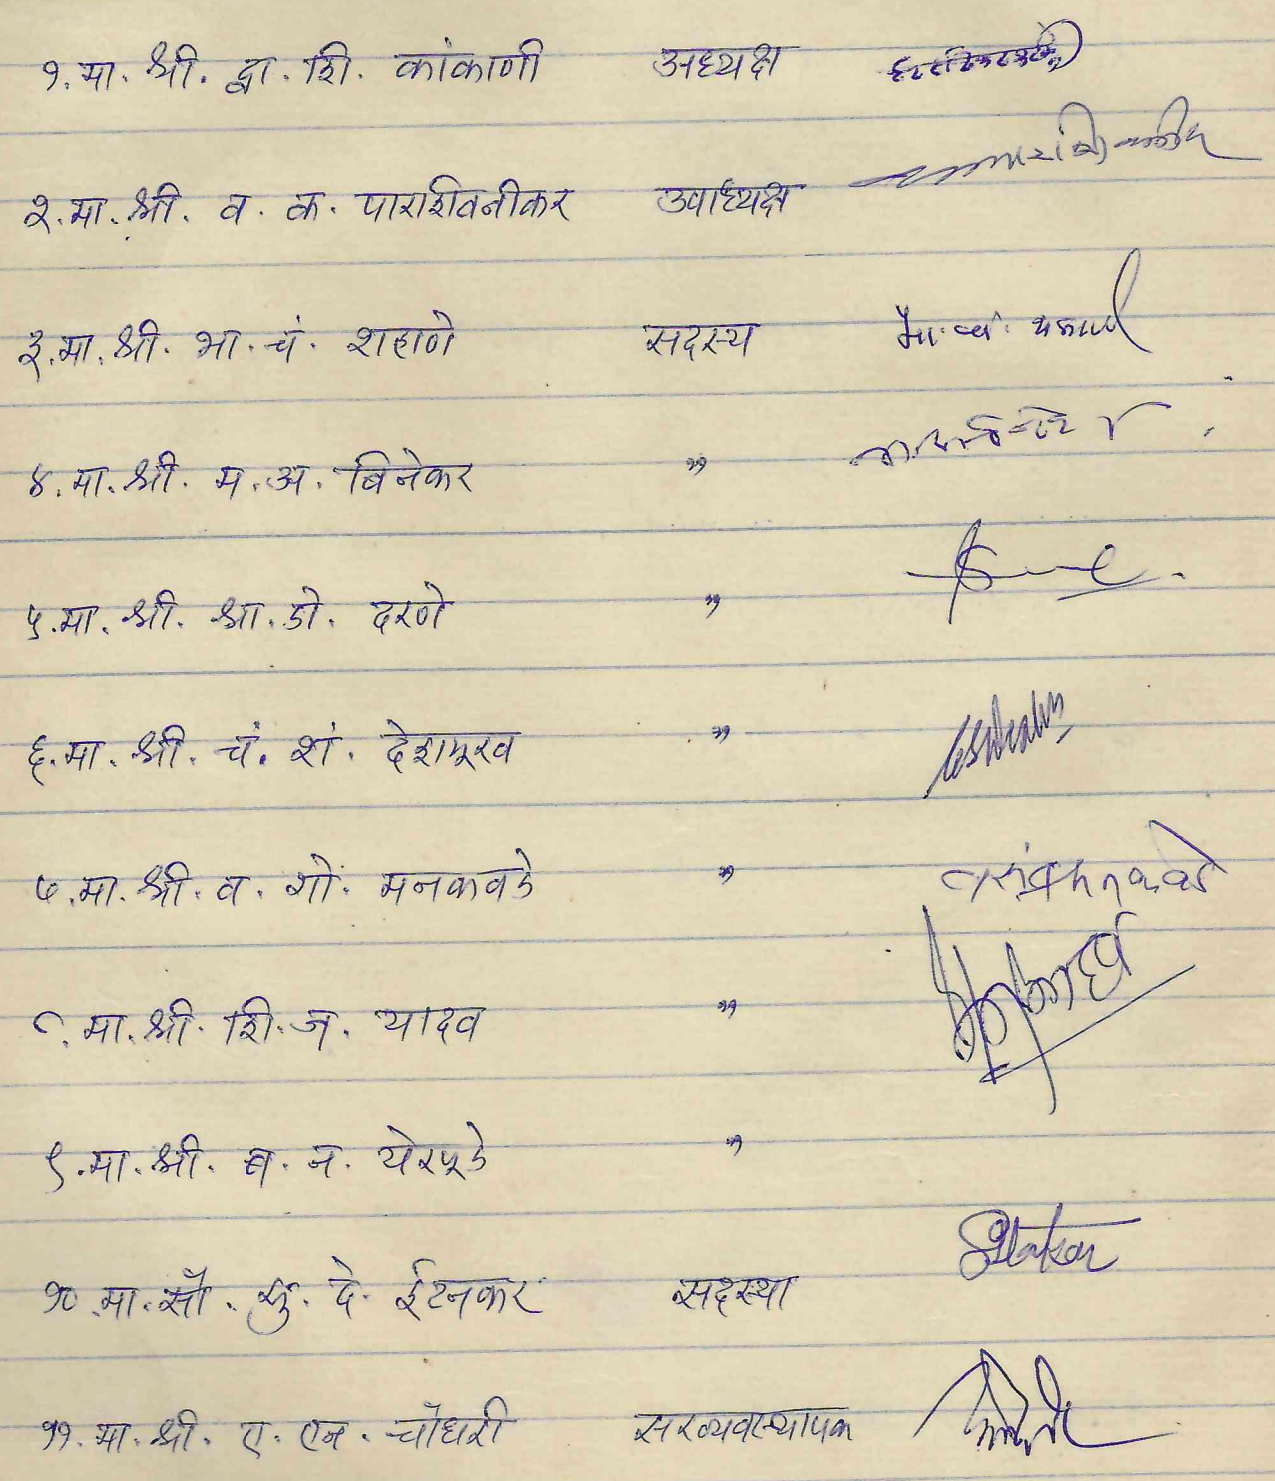 १. मा. श्री. द्वा. शि. कांकाणी अध्यक्ष
२. मा. श्री. व. क. पारशिवनीकर उपाध्यक्ष
३. मा. श्री. भा. चं. शहाणे सदस्य
४. मा. श्री. म. अ. बिनेकर "
५. मा. श्री. श्रा. डो. दरणे "
६. मा. श्री. चं. शं. देशमूख "
७. मा. श्री. व. गो. मनकवडे "
८. मा. श्री. शि. ज. यादव "
९. मा. श्री. ब. न. येरपूडे "
१०. मा. सौ. सु. दे. ईटनकर सदस्या
११. मा. श्री. ए. एन. चौधरी सरव्यवस्थापक